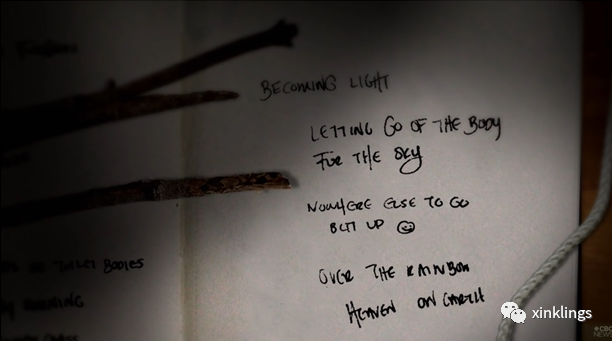 BECOMING LIGHT
LETTING GO OF THE BODY
FOR THE SKY
NOWHERE ELSE TO GO
BUT UP ☺
OVER THE RAINBOW
HEAVEN ON EARTH
BODIES
xinklings
CBS
NEWS